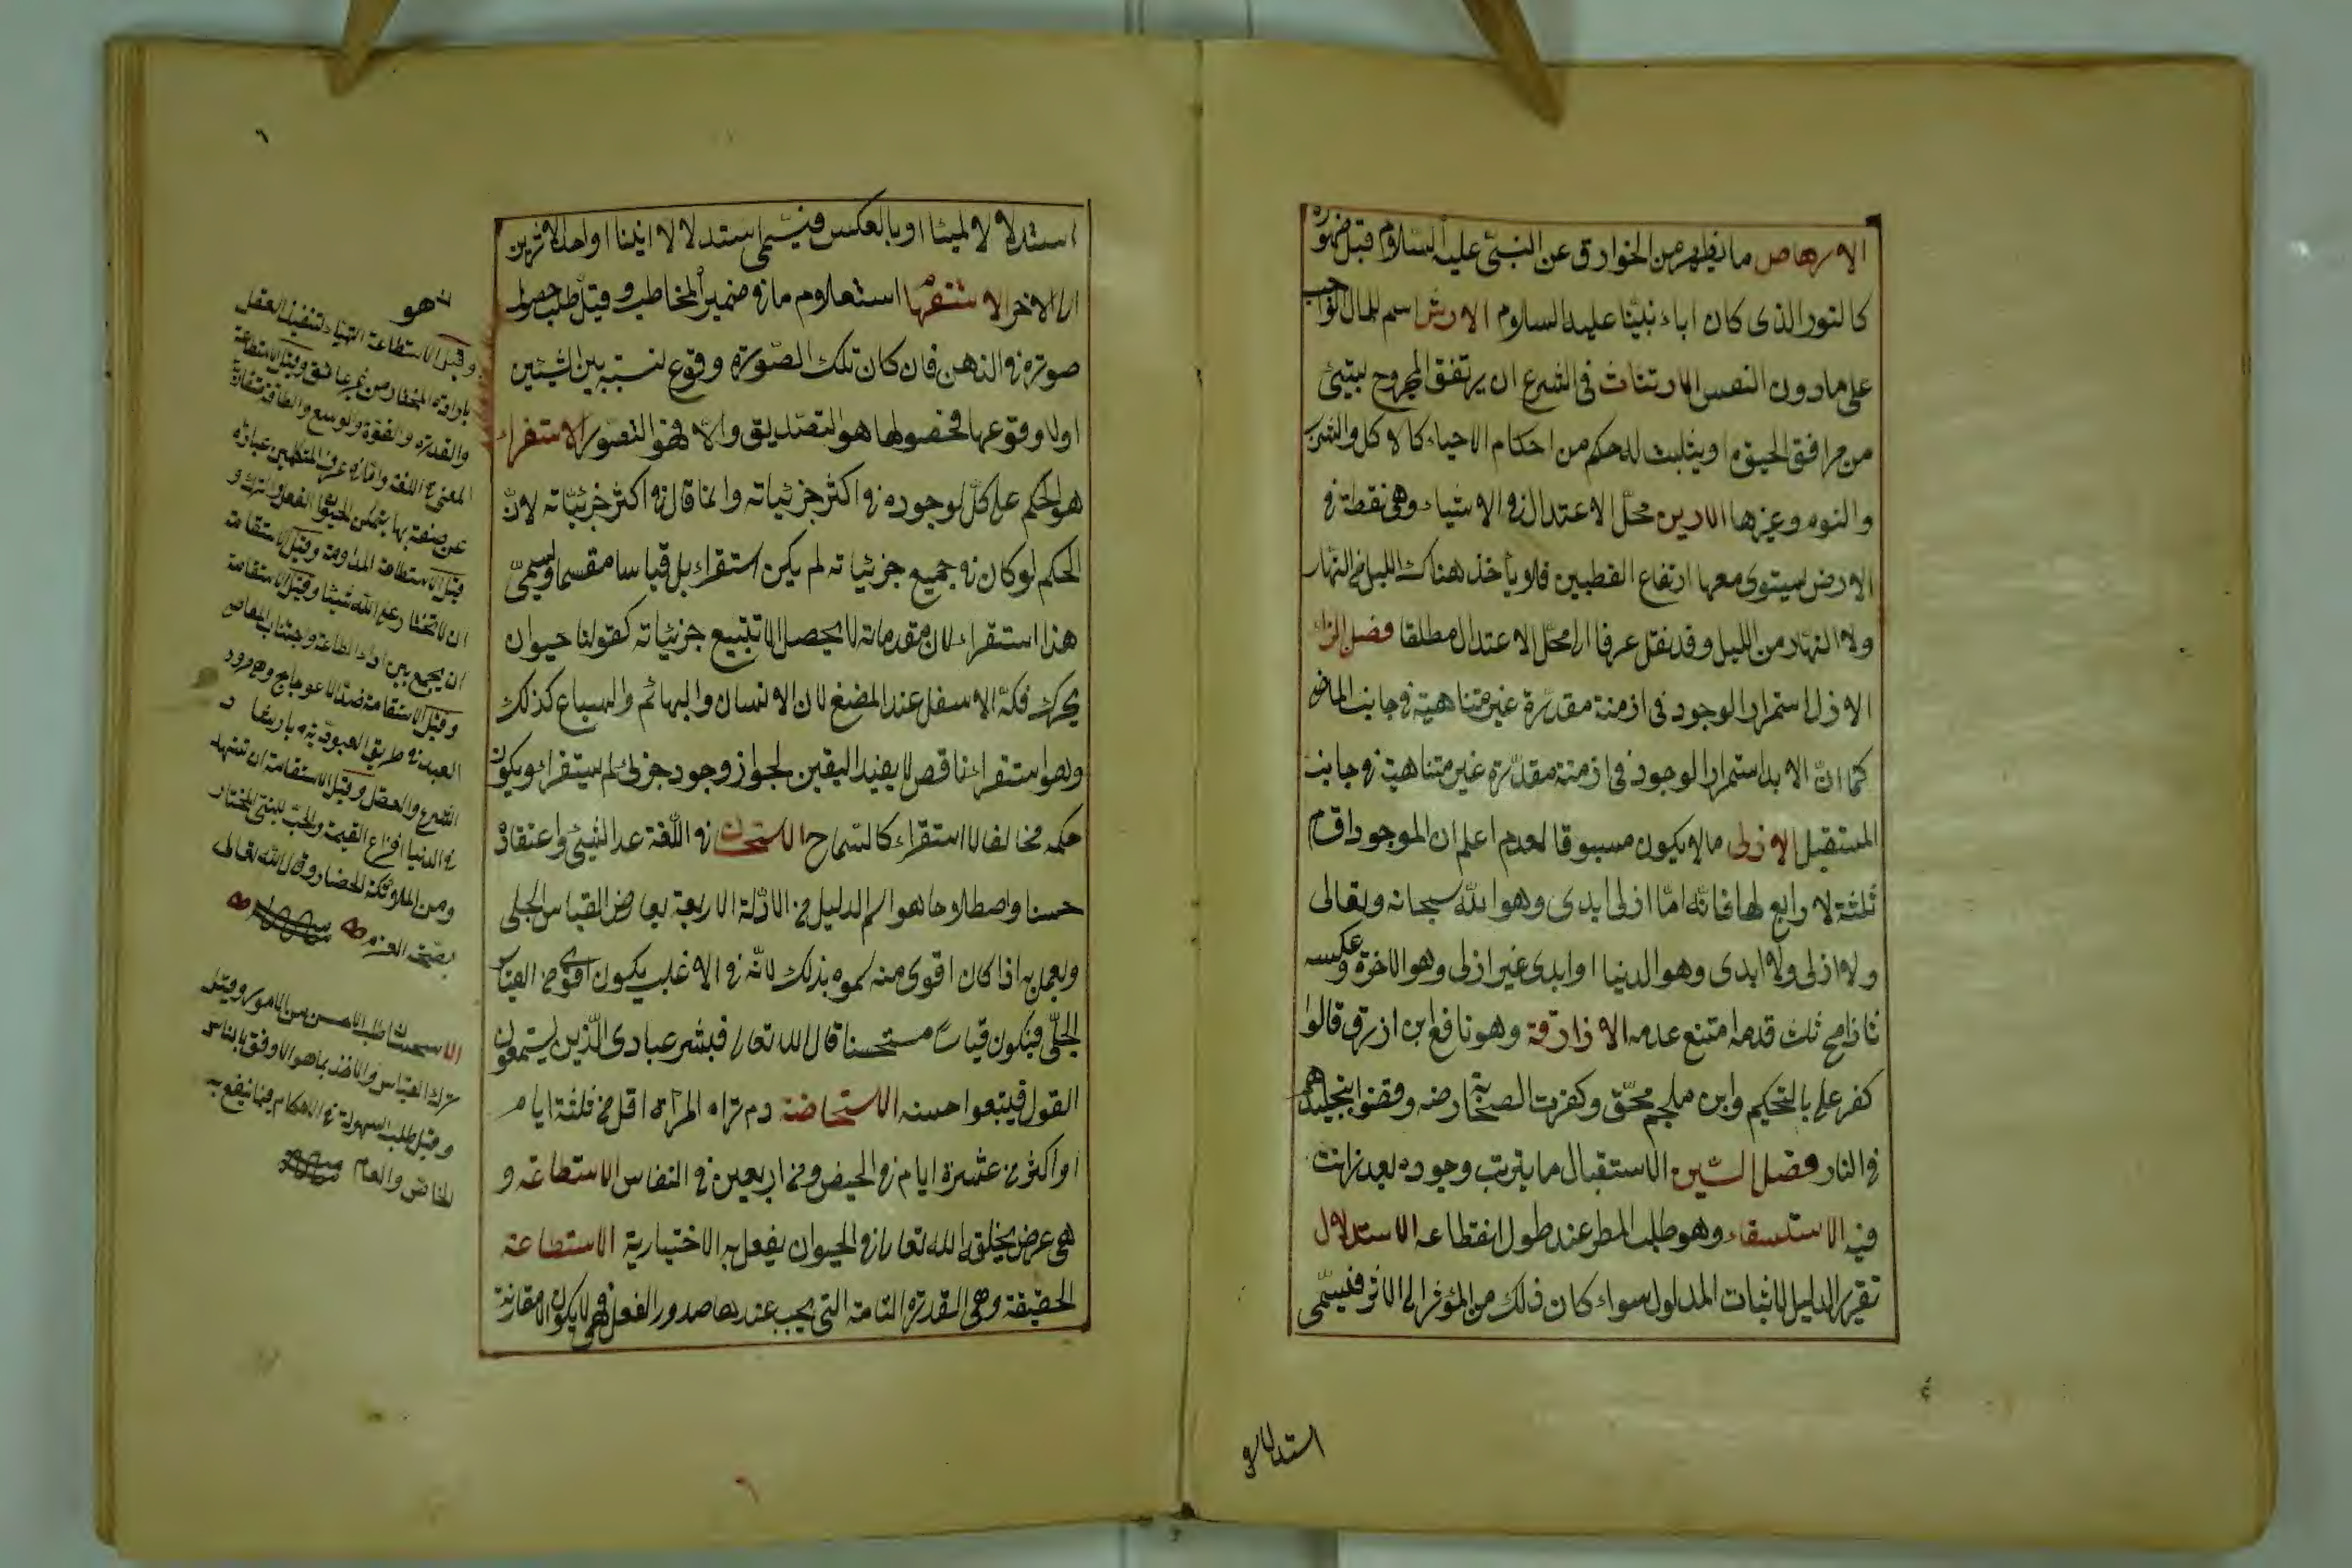 الارهاص ما يظهر من الخوارق عن النبي عليه السلام قبل ظهوره
كالنور الذى كان اباء نبينا عليه السلام الارش اسم للمال الواجب
على مادون النفس الارتثاث فى الشرع ان يرتفق المجروح بشئ
من مرافق الحيوة او يثبت له حكم من احكام الاحياء كالاكل والشرب
والنوم وغيرها الارين محل الاعتدال فى الاشياء وهى نقطة فى
الارض يستوى معها ارتفاع القطبين فلا يأخذ هناك الليل من النهار
ولا النهار من الليل وقد نقل عرفا الى محل الاعتدال مطلقا فصل الزاء
الازل استمرار الوجود فى ازمنة مقدرة غير متناهية فى جانب الماضى
كما ان الابد استمرار الوجود فى ازمنة مقدرة غير متناهية فى جانب
المستقبل الازلى مالا يكون مسبوقا لعدم اعلم ان الموجود اقسام
ثلثة لا رابع لها فانه اما ازلى ابدى وهو الله سبحانه وتعالى
ولا ازلى ولا ابدى وهو الدنيا او ابدى غير ازلى وهو الاخرة وعكسه
فاذا مح ثبت قدمه امتنع عدمه الازارقة وهو نافع ابن ازرق قالوا
كفر على بالتحكيم وابن ملجم محق وكفرت الصحابة رضه وقضوا بتخليدهم
فى النار فصل السين الاستقبال ما يترتب وجوده بعد زمانت
فيه الاستسقاء وهو طلب المطر عند طول انقطاعه الاستدلال
تقرير الدليل لاثبات المدلول سواء كان ذلك من المؤثر الى الاثر فيسمى
استدلالا
استدلالا لميا او بالعكس فيسمى استدلالا انيا او احد الاثرين
الى الاخر الاستفهام استعلام ما فى ضمير المخاطب وقيل طلب حصول
صورة فى الذهن فان كان تلك الصورة وقوع نسبة بين الشيئين
اولا وقوعها فحصولها هو التصديق والا فهو التصور الاستقراء
هو الحكم على كل لوجوده فى اكثر جزئياته وانما قال فى اكثر جزئياته لان
الحكم لو كان فى جميع جزئياته لم يكن استقراء بل قياسا مقسما ويسمى
هذا استقراء لان مقدماته لا يحصل الا بتتبع جزئياته كقولنا حيوان
يحرك فكه الاسفل عند المضغ لان الانسان والبهائم والسباع كذلك
وهو استقراء ناقص لا يفيد اليقين لجواز وجود جزئى لم يستقراء ويكون
حكمه مخالفا لا استقراء كالتمساح الاستحسان فى اللغة عد الشئ واعتقاده
حسنا واصطلاحا هو اسم الدليل من الادلة الاربعة يعارض القياس الجلى
ويعمل به اذا كان اقوى منه سموه بذلك لانه فى الاغلب يكون اقوى من القياس
الجلى فيكون قياسا مستحسنا قال الله تعالى فبشر عبادى الذين يستمعون
القول فيتبعوا حسنه الاستحاضة دم تراه المرأة اقل من ثلثة ايام
او اكثر من عشرة ايام فى الحيض ومن اربعين فى النفاس الاستطاعة و
هى عرض يخلق الله تعالى فى الحيوان يفعل به الاختيارية الاستطاعة
الحقيقة وهى القدرة التامة التى يجب عندها صدور الفعل فهى لا يكون الا مقارنة
وقيل الاستطاعة التهياء لتنفيذ العقل
بارادة المختار من غير عائق وقيل الاستطاعة
والقدرة والقوة والوسع والطاقة متقاربة
المعنى فى اللغة واما فى عرف المتكلمين عبارة
عن صفة بها يتمكن الحيوان الفعل والترك و
قيل الاستطاعة المداومة وقيل الاستقامة
ان لا تختار على الله شيئا وقيل الاستقامة
ان يجمع بين اداء الطاعة واجتناب المعاصى
وقيل الاستقامة ضد الاعوجاج وهو مرور
العبد فى طريق العبودية بارشاد
الشرع والعقل وقيل الاستقامة ان تشهد
فى الدنيا
ومن الملائكة وقال الله تعالى
الاستحسان طلب الاحسن من الامور وقيل
ترك القياس والاخذ بما هو الاوفق بالناس
وقيل طلب السهولة فى الاحكام فيما ينفع به
الخاص والعام